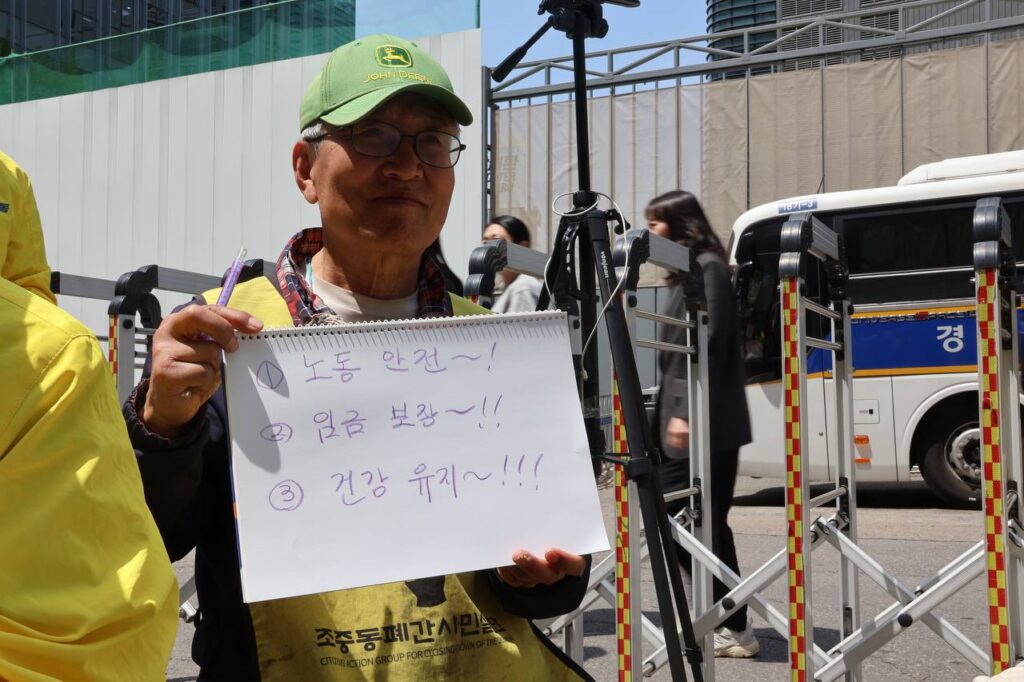 JOHN DEERE
18기-3
경
① 노동 안전~!
② 임금 보장~!!
③ 건강 유지~!!!
조중동폐간시민
CITIZENS ACTION GROUP FOR CLOSING DOWN OF THE